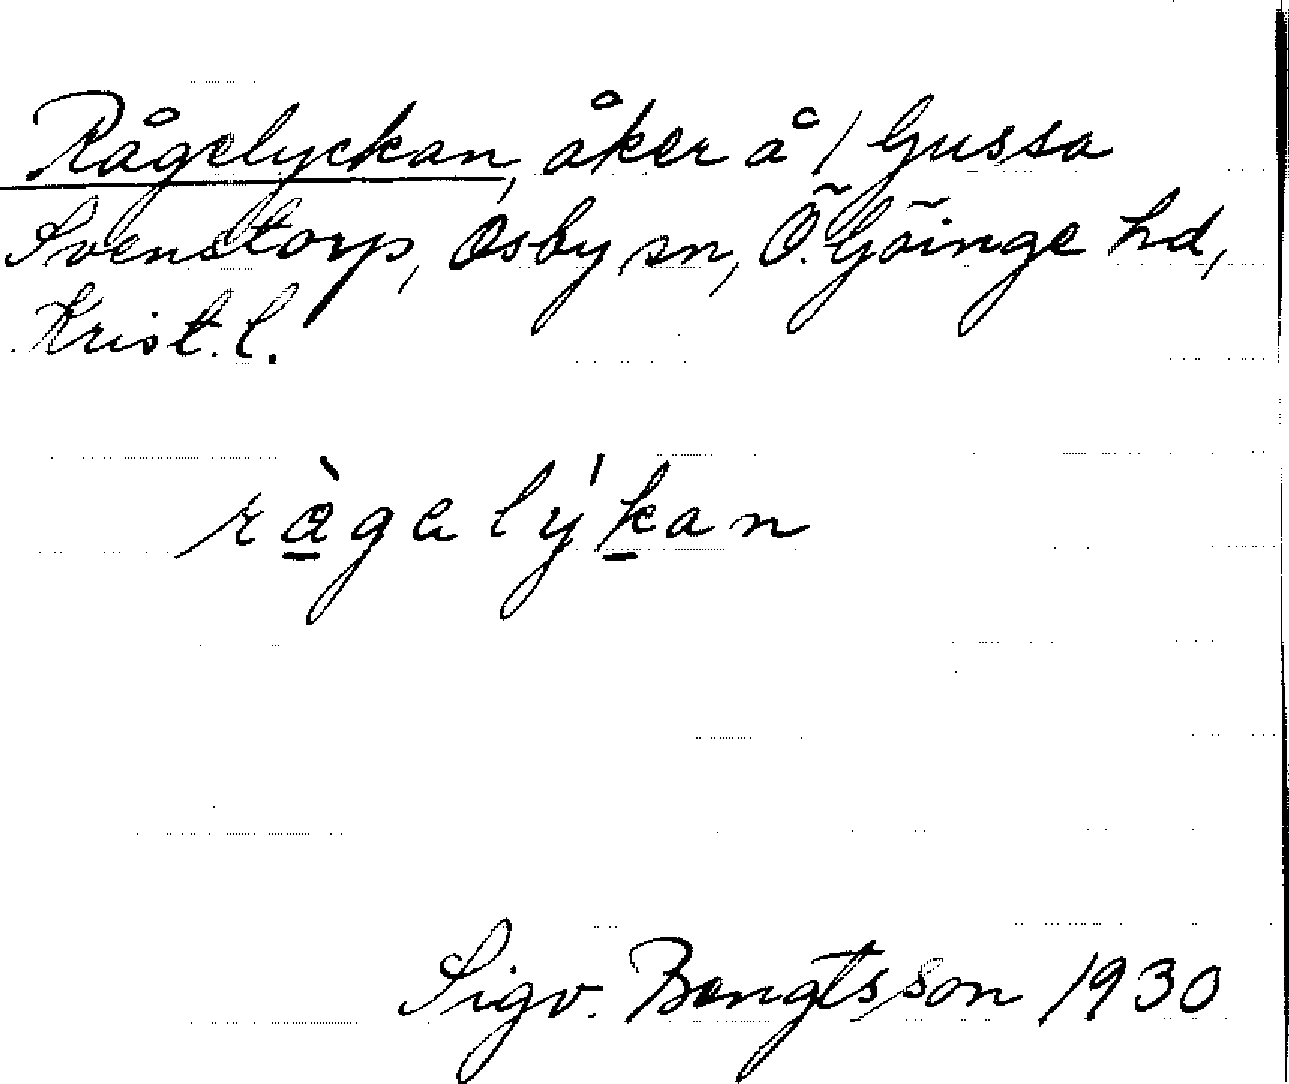 Rågelyckan, åker å / Gussa
Svenstorp, Osby sn, Ö. Göinge hd,
Krist. l.
ràgelýkan
Sigv. Bengtsson 1930